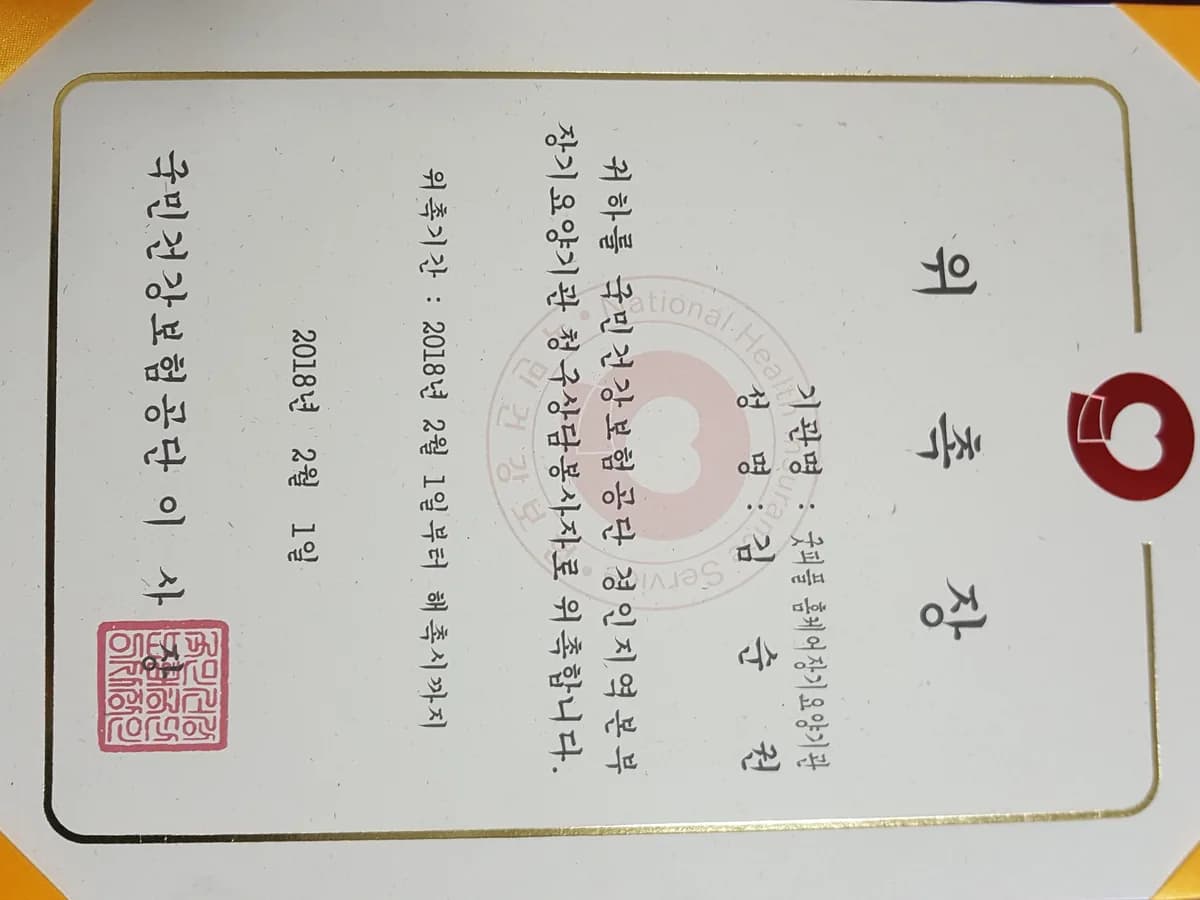 위 촉 장
기관명 : 굿피플 홈케어장기요양기관
성 명 : 김 순 천
귀하를 국민건강보험공단 경인지역본부
장기요양기관 청구상담봉사자로 위촉합니다.
위촉기간 : 2018년 2월 1일부터 해촉시까지
2018년 2월 1일
국민건강보험공단 이 사 장
National Health Insurance Service
국민건강보험